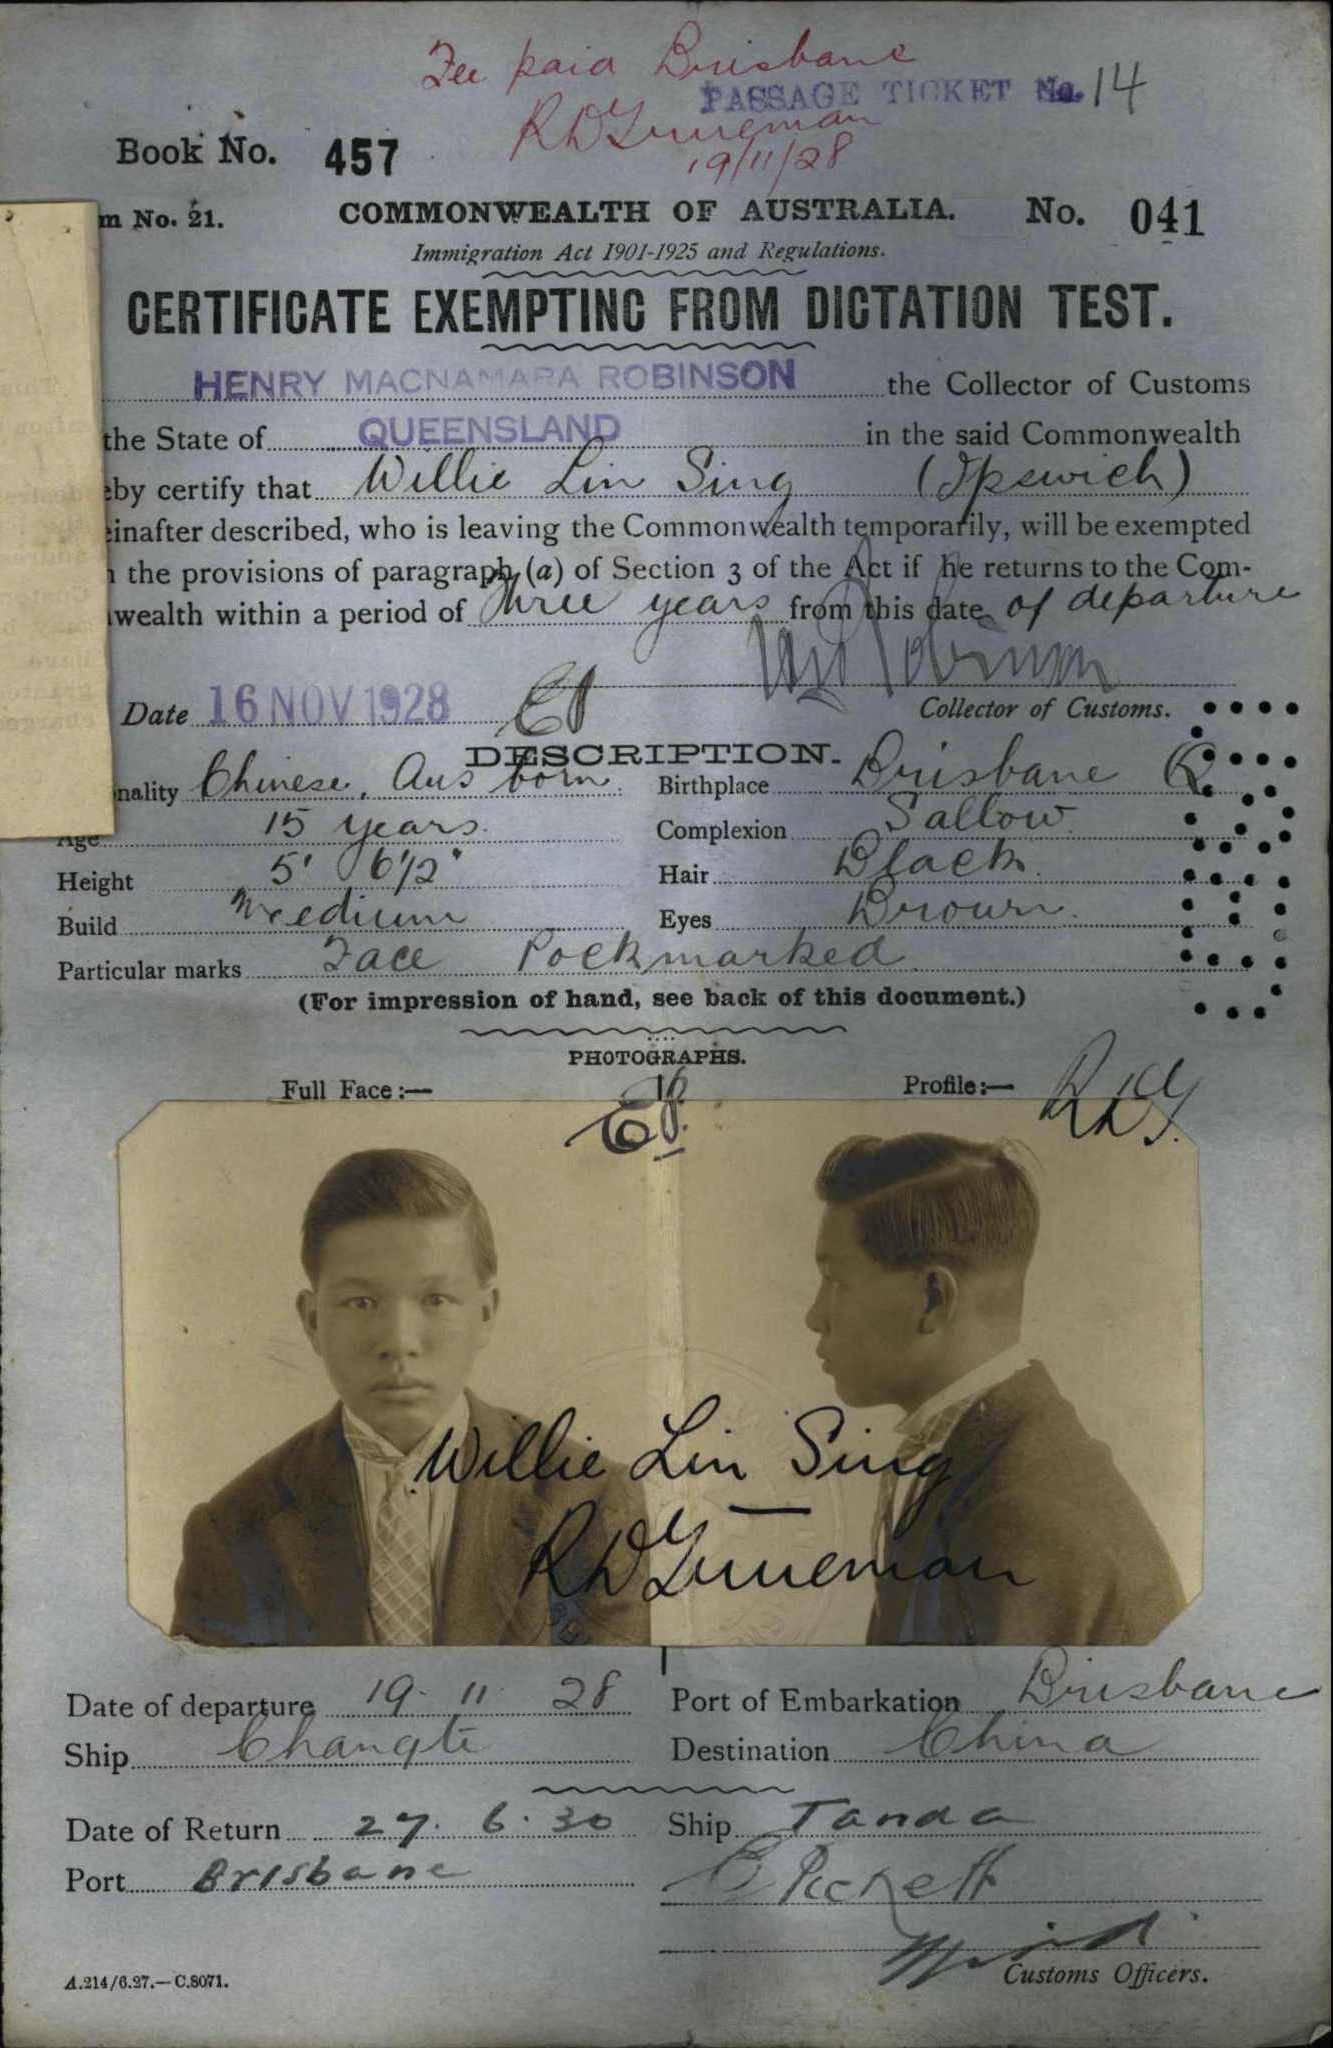 Fee paid Brisbane
PASSAGE TICKET No. 14
19/11/28
Book No. 457
m No. 21. COMMONWEALTH OF AUSTRALIA. No. 041
Immigration Act 1901-1925 and Regulations.
CERTIFICATE EXEMPTING FROM DICTATION TEST.
HENRY MACNAMARA ROBINSON the Collector of Customs
the State of QUEENSLAND in the said Commonwealth
eby certify that Willie Lin Sing (Ipswich)
einafter described, who is leaving the Commonwealth temporarily, will be exempted
the provisions of paragraph (a) of Section 3 of the Act if he returns to the Com-
wealth within a period of three years from this date of departure
Date 16 NOV 1928
Collector of Customs.
DESCRIPTION.
nality Chinese, Aus born Birthplace Brisbane Q
Age 15 years Complexion Sallow
Height 5' 6½" Hair Black
Build Medium Eyes Brown
Particular marks Face Pockmarked
(For impression of hand, see back of this document.)
PHOTOGRAPHS.
Full Face:— Profile:—
Willie Lin Sing
Date of departure 19 11 28 Port of Embarkation Brisbane
Ship Changte Destination China
Date of Return 27. 6. 30 Ship Tanda
Port Brisbane
Customs Officers.
A.214/6.27.—C.8071.